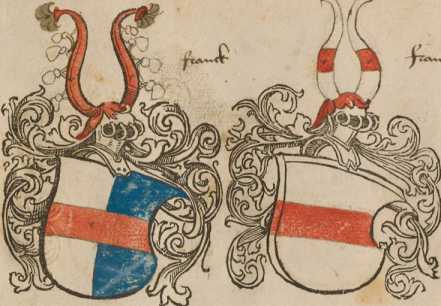 franck
fran